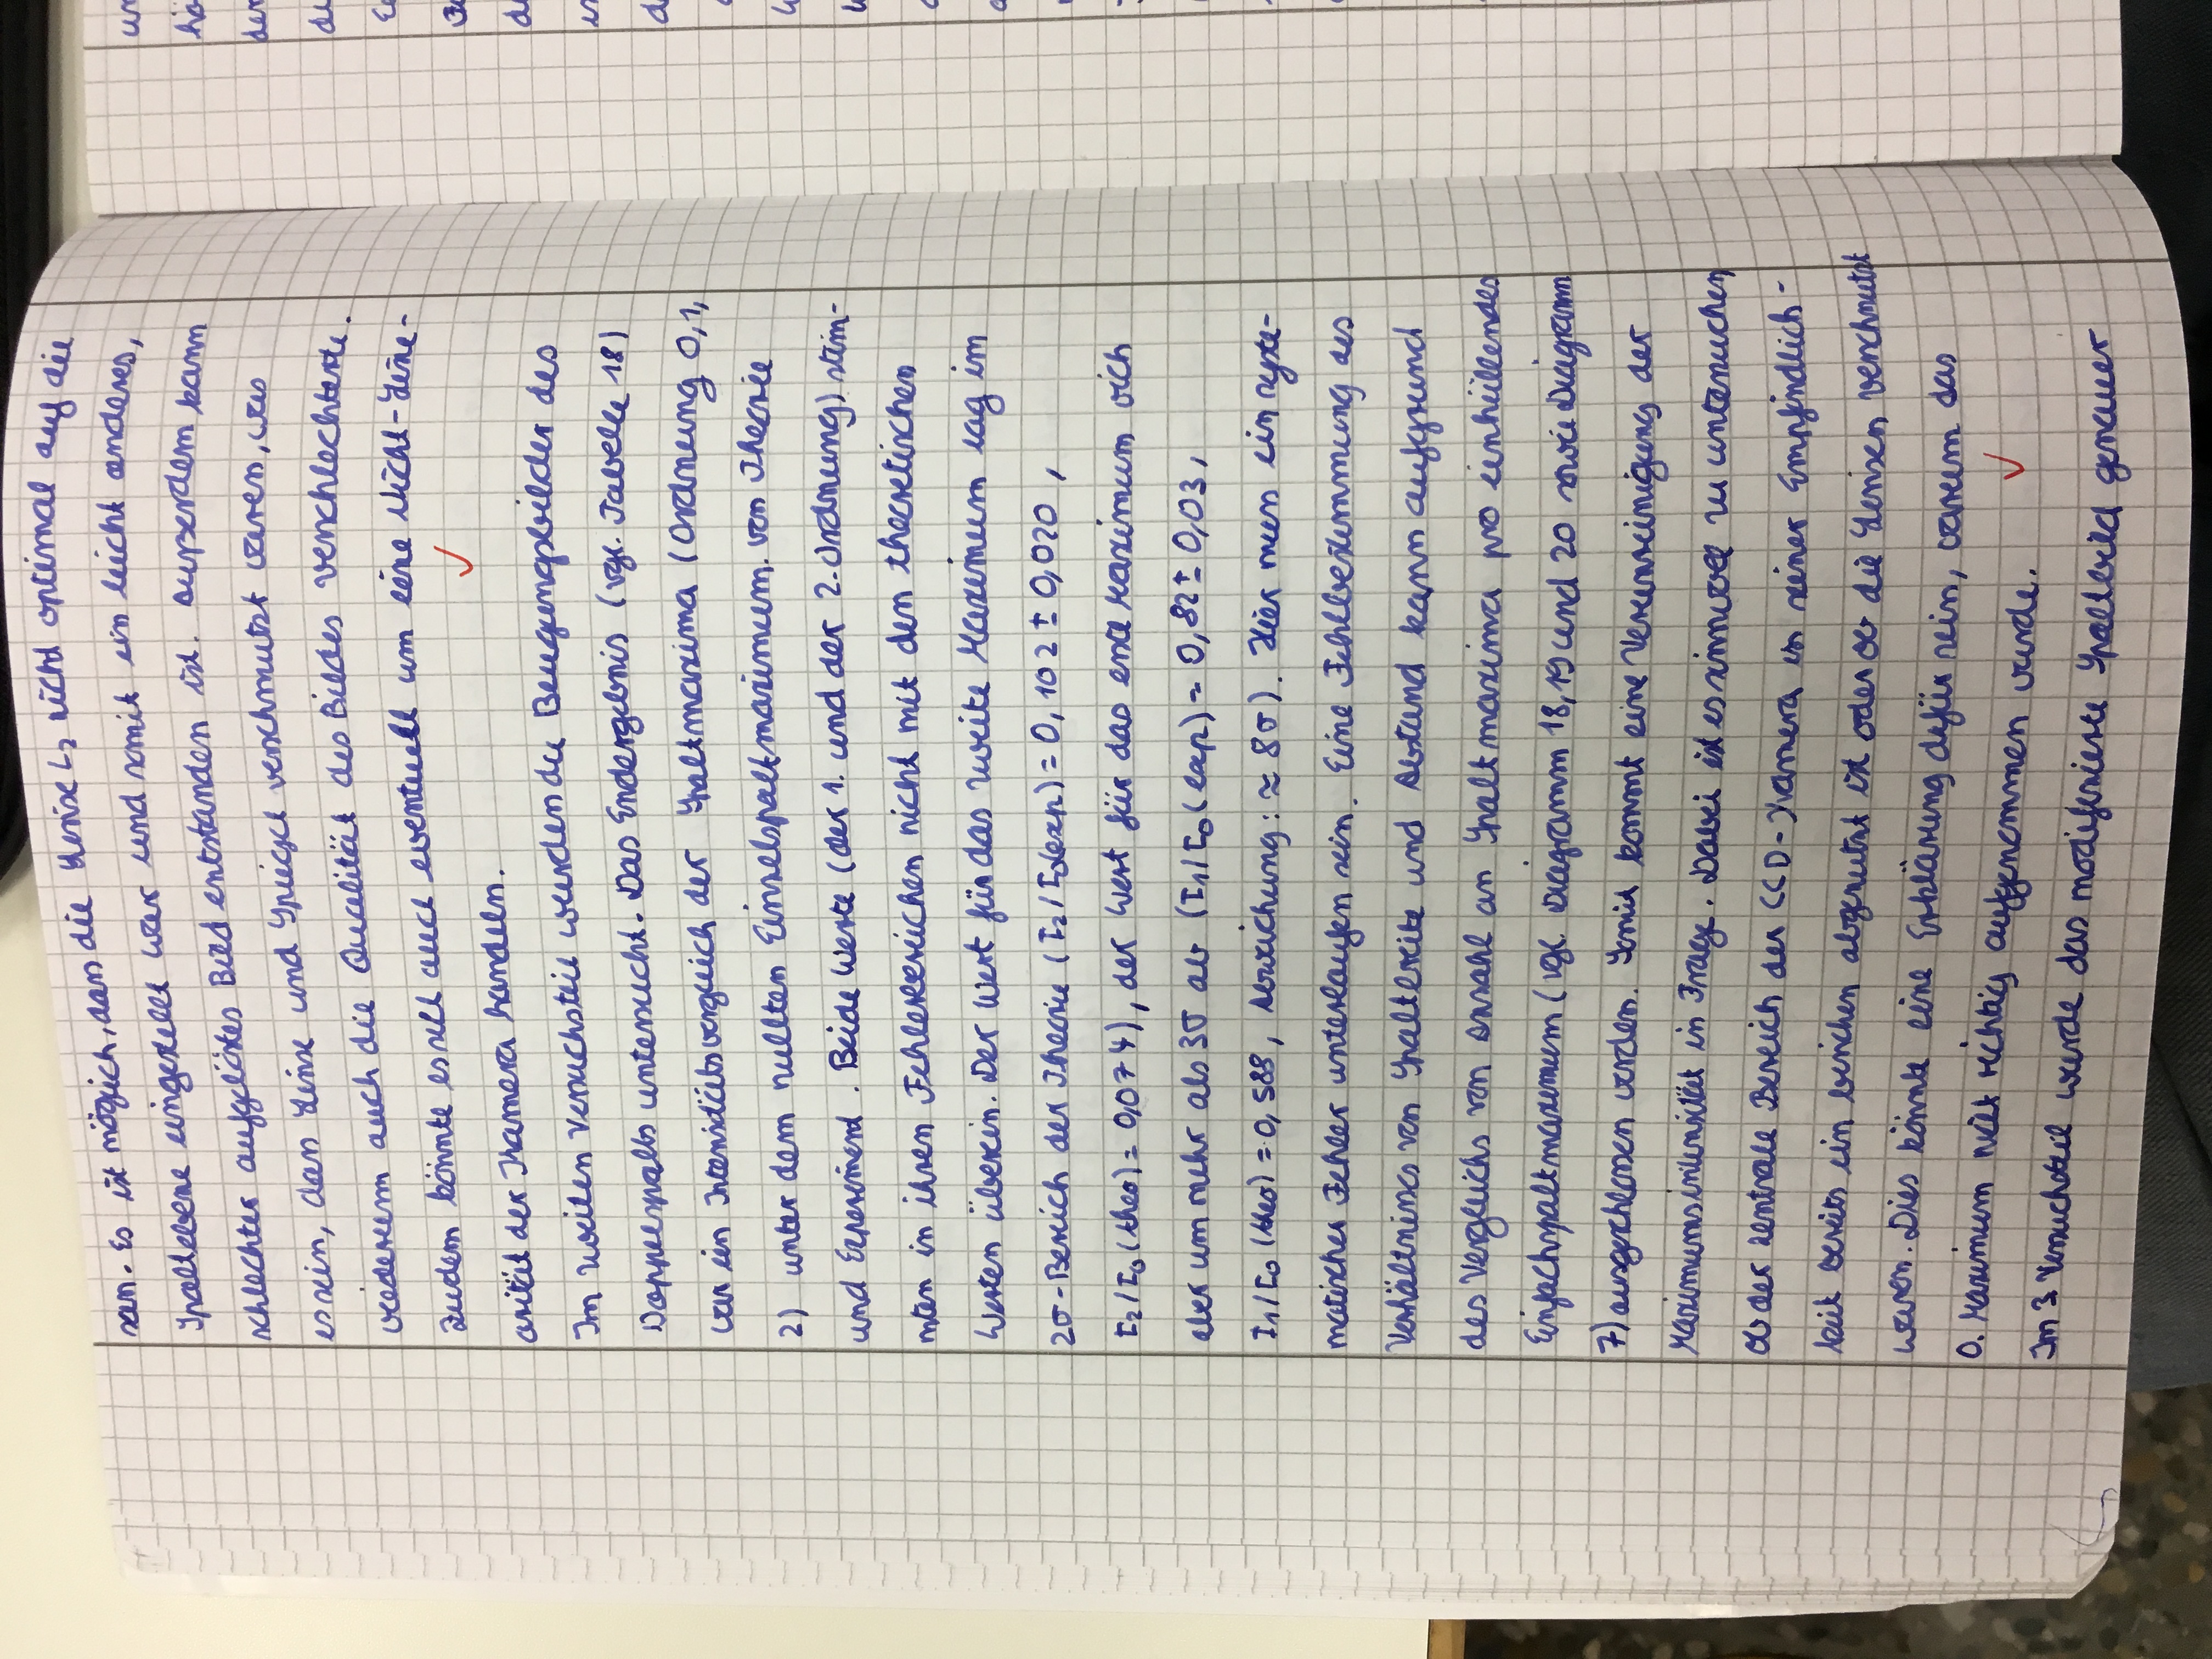 sein. Es ist möglich, dass die Linse L₂ nicht optimal auf die
Spaltebene eingestellt war und somit ein leicht anderes,
schlechter aufgelöstes Bild entstanden ist. Außerdem kann
es sein, dass Linse und Spiegel verschmutzt waren, was
wiederum auch die Qualität des Bildes verschlechterte.
Zudem könnte es sich auch eventuell um eine Nicht-Line-
arität der Kamera handeln.
Im zweiten Versuchsteil wurden die Beugungsbilder des
Doppelspalts untersucht. Das Endergebnis (vgl. Tabelle 18)
war ein Intensitätsvergleich der Spaltmaxima (Ordnung 0,1,
2) unter dem nullten Einzelspaltmaximum von Theorie
und Experiment. Beide Werte (der 1. und der 2. Ordnung) stim-
mten in ihren Fehlerbereichen nicht mit den theoretischen
Werten überein. Der Wert für das zweite Maximum lag im
2σ-Bereich der Theorie (I₂/I₀(exp) = 0,102 ± 0,020,
I₂/I₀(theo) = 0,074), der Wert für das erste Maximum wich
aber um mehr als 3σ ab (I₁/I₀(exp) = 0,82 ± 0,03,
I₁/I₀(theo) = 0,588, Abweichung: ≈ 8σ). Hier muss ein syste-
matischer Fehler unterlaufen sein. Eine Fehlbestimmung des
Verhältnisses von Spaltbreite und Abstand kann aufgrund
des Vergleichs von Anzahl an Spaltmaxima pro einhüllendes
Einfachspaltmaximum (vgl. Diagramm 18,19 und 20 sowie Diagramm
7) ausgeschlossen werden. Somit kommt eine Verunreinigung der
Maximumsintensität in Frage. Dabei ist es sinnvoll zu untersuchen,
ob der zentrale Bereich der CCD-Kamera in seiner Empfindlich-
keit bereits ein bisschen abgenutzt ist oder ob die Linsen verschmutzt
waren. Dies könnte eine Erklärung dafür sein, warum das
0. Maximum nicht richtig aufgenommen wurde.
Im 3. Versuchsteil wurde das modifizierte Spaltbild genauer